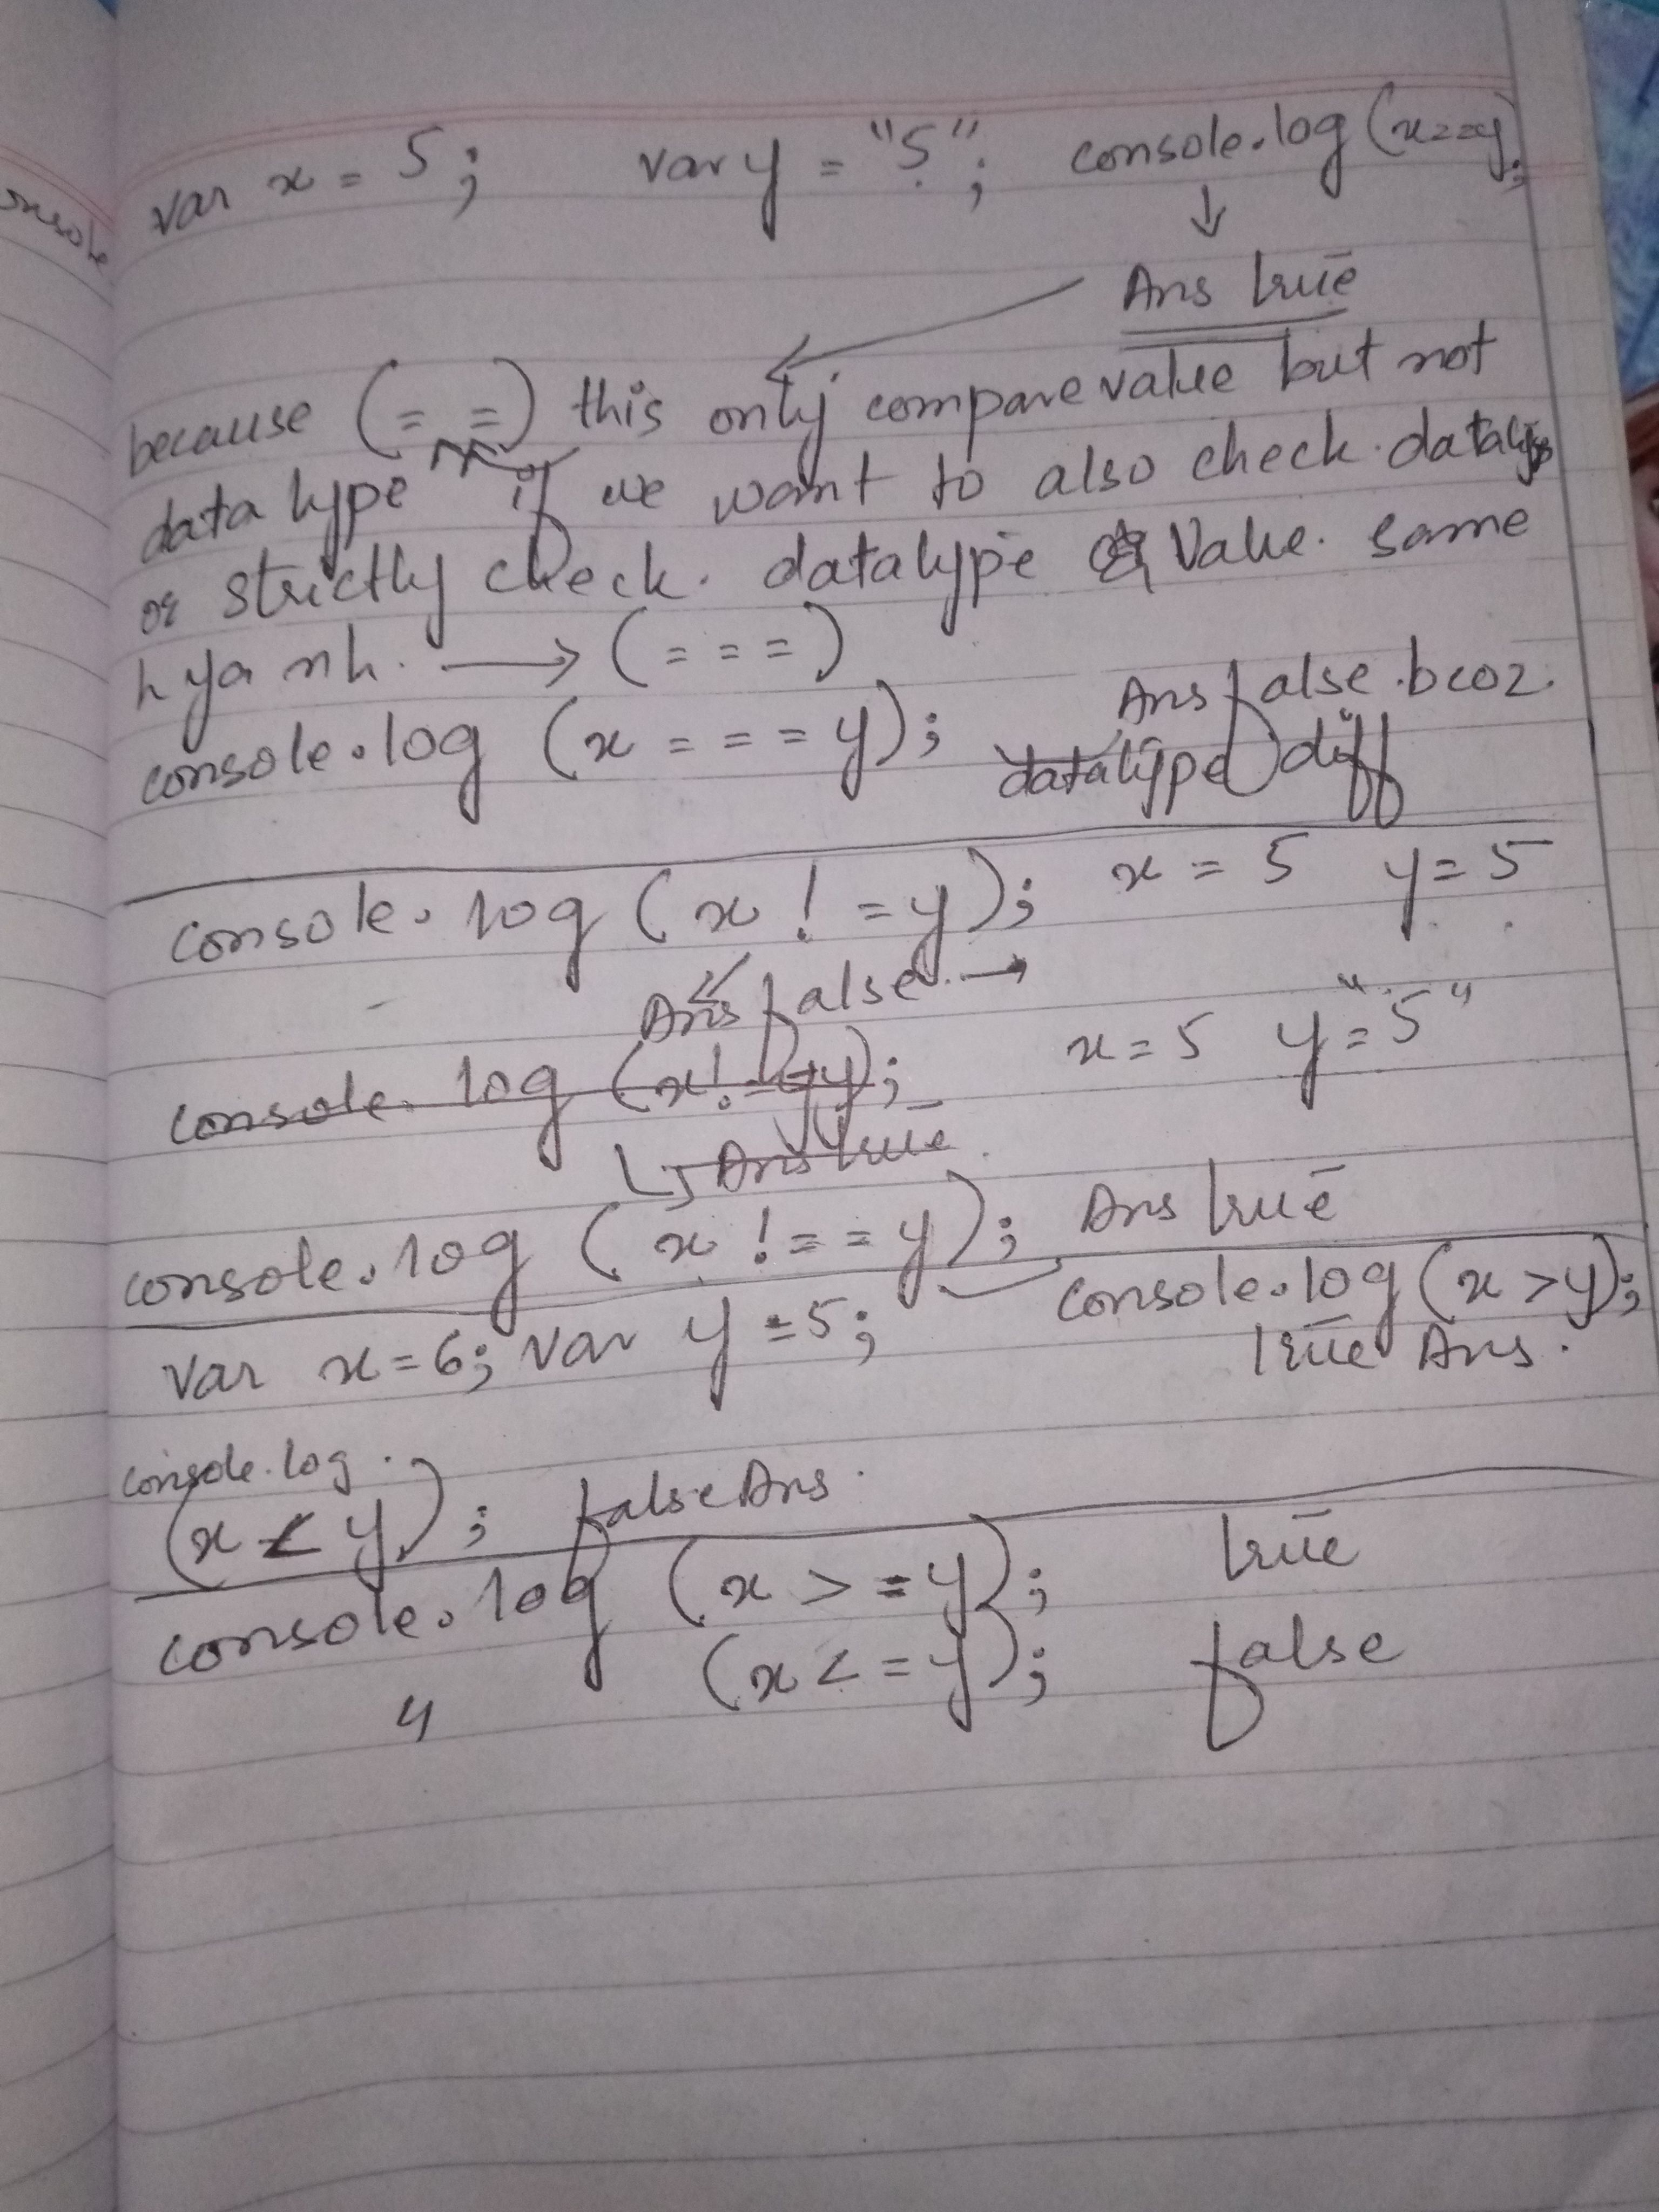 var x = 5; var y = "5"; console.log(x==y);
Ans true
because (==) this only compare value but not
data type if we want to also check datatype
or strictly check. datatype & Value. same
h ya nh. → (===)
console.log (x === y); Ans false.bcoz.
datatype diff
console.log (x != y); x = 5 y = 5
Ans false →
x = 5 y = "5"
console.log
Ans true
console.log (x !== y); Ans true
var x = 6; var y = 5; console.log (x > y);
true Ans.
console.log.
(x < y); false Ans.
console.log (x >= y); true
(x <= y); false
4